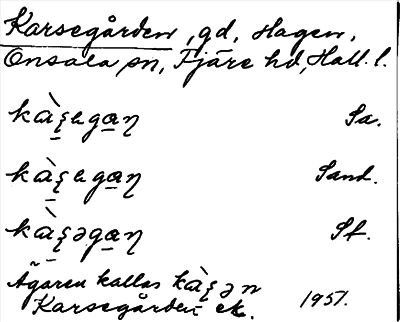 Karsegården, gd, Hagen,
Onsala sn, Fjäre hd, Hall. l.
kàʂegaɳ Sa.
kàʂegaɳ Sand.
kàʂəgaɳ St.
Ägaren kallas kàʂən
Karsegården ek. 1957.